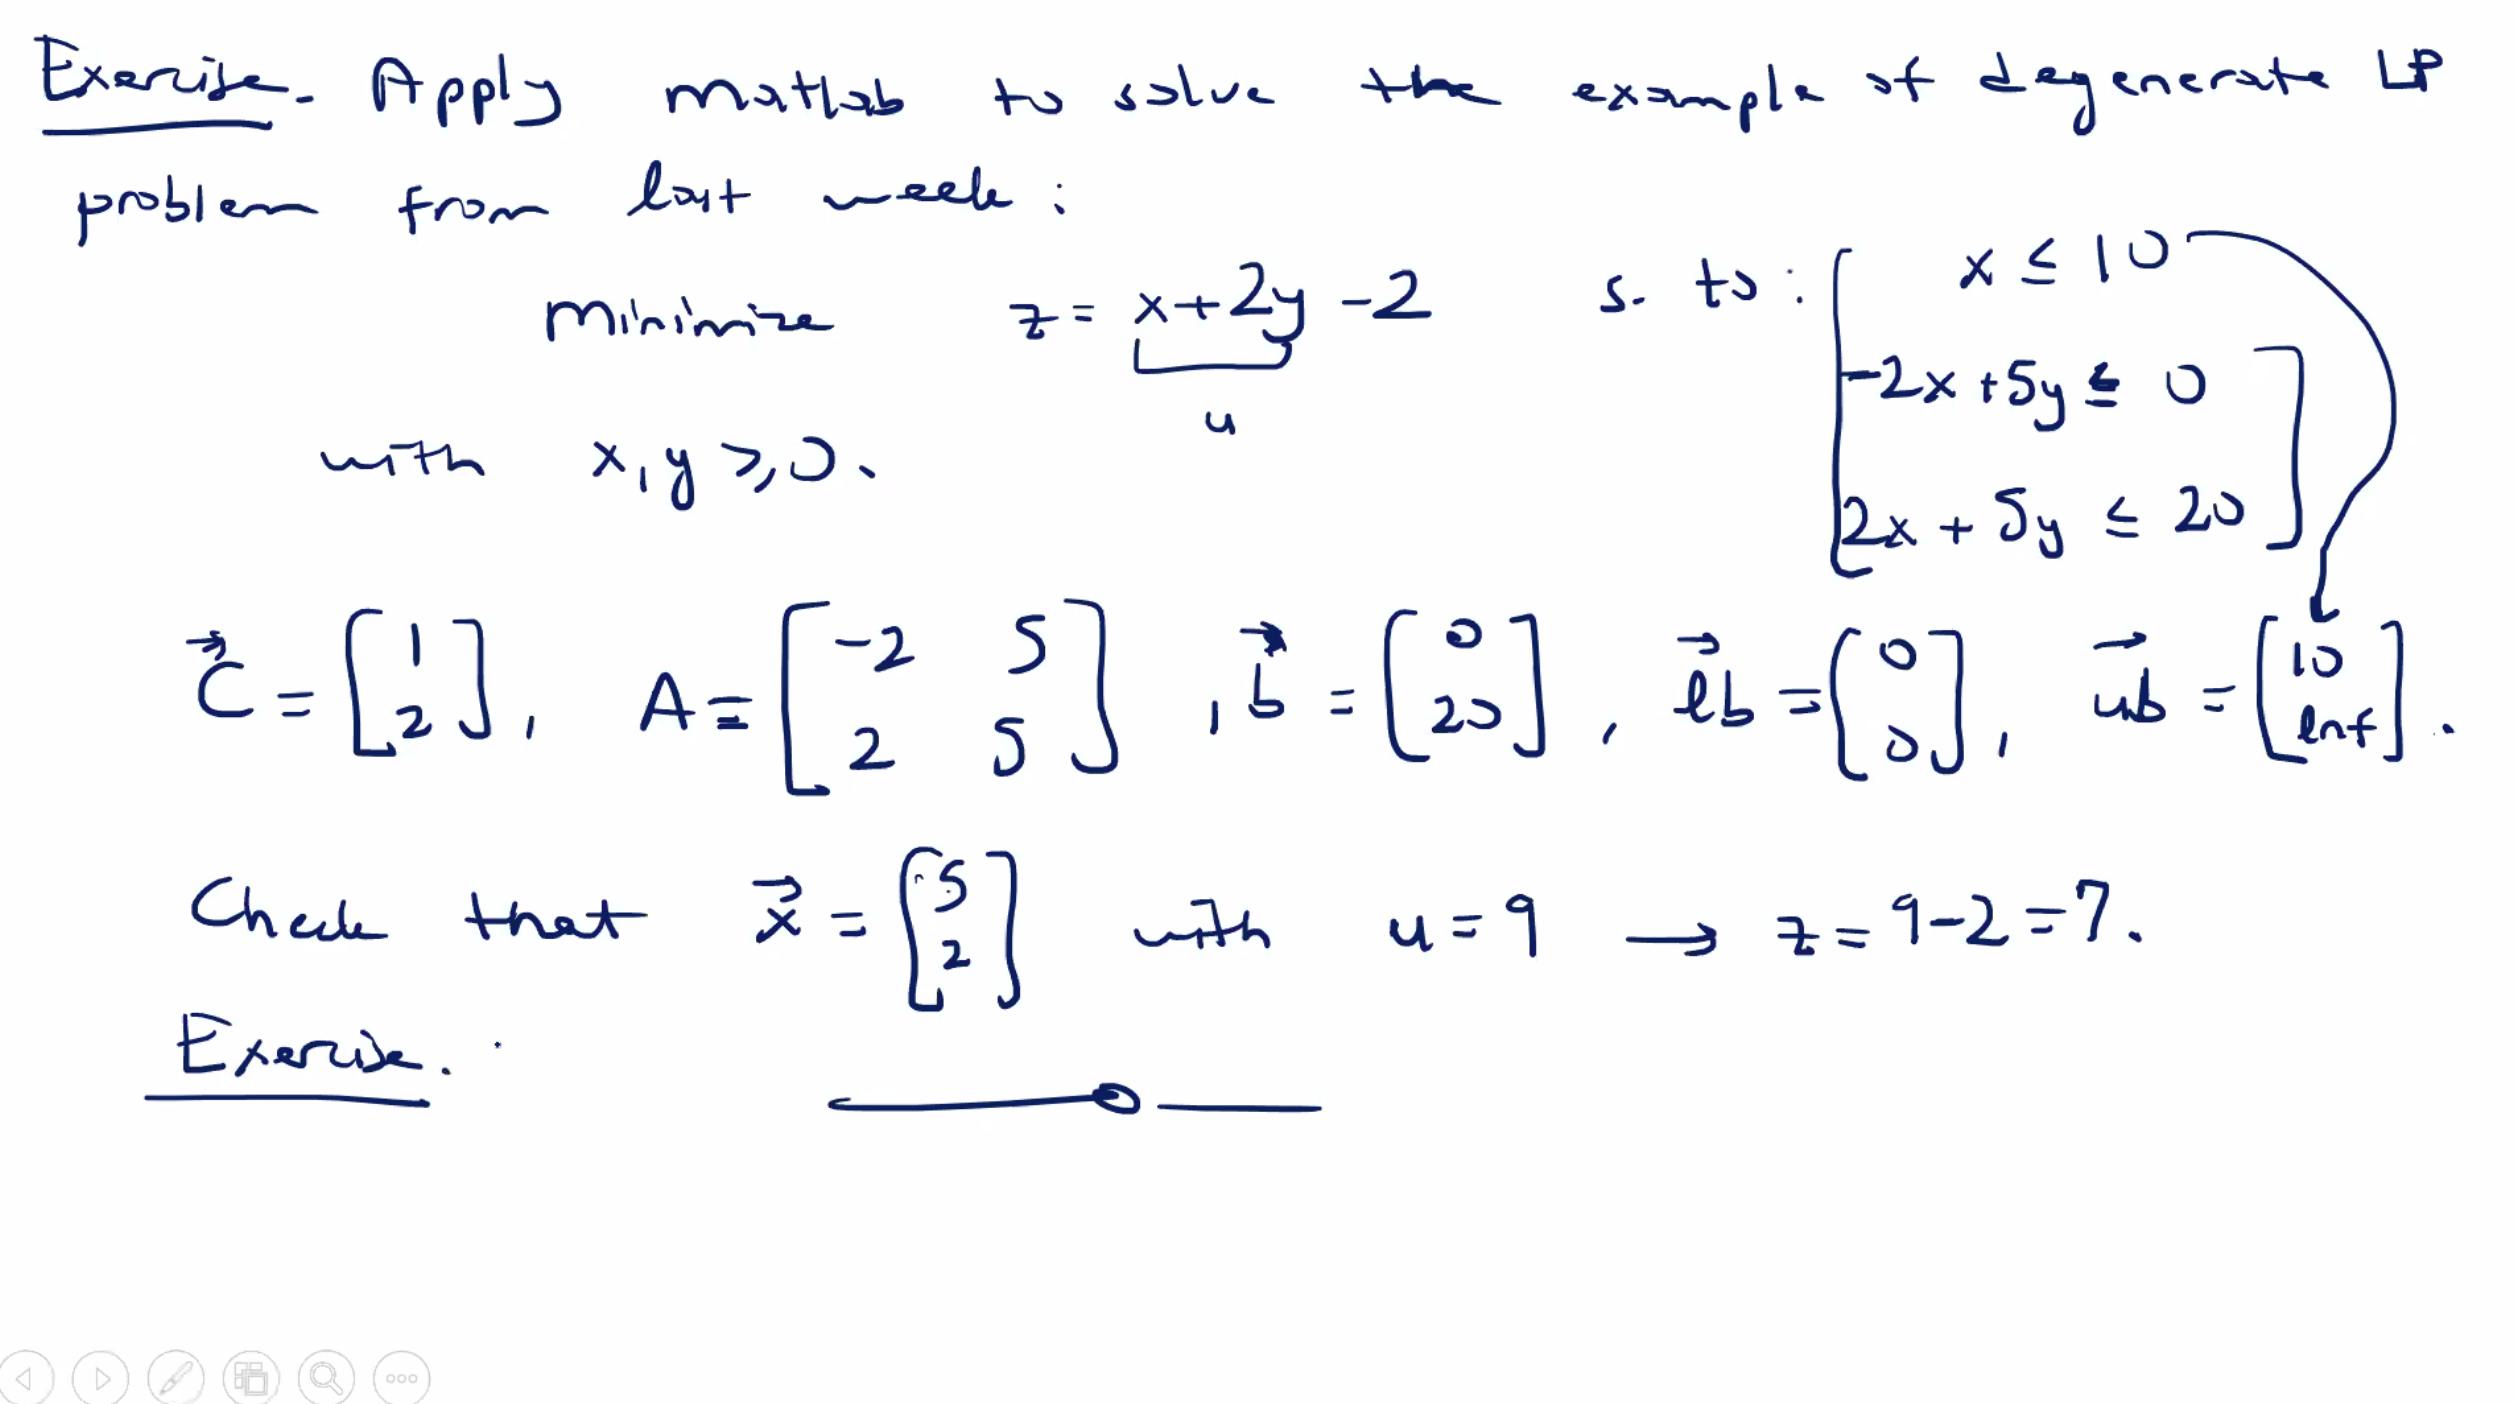 Exercise. Apply Matlab to solve the example of degenerate LP
problem from last week:
Minimize z = x+2y -2 s. to: x ≤ 10
u
-2x +5y ≤ 0
with x,y ≥ 0.
2x + 5y ≤ 20
C = [1 2], A = [-2 5 2 5], b = [0 20], lb = [0 0], ub = [10 Inf].
Check that x = [5 2] with u = 9 → z = 9-2 = 7.
Exercise.